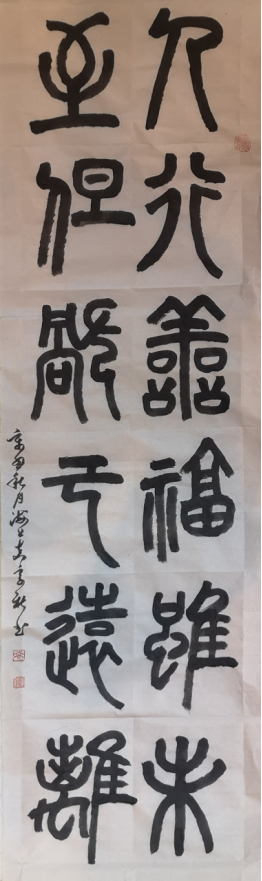 人行善福雖未
至但禍已遠離
辛丑秋月海上书